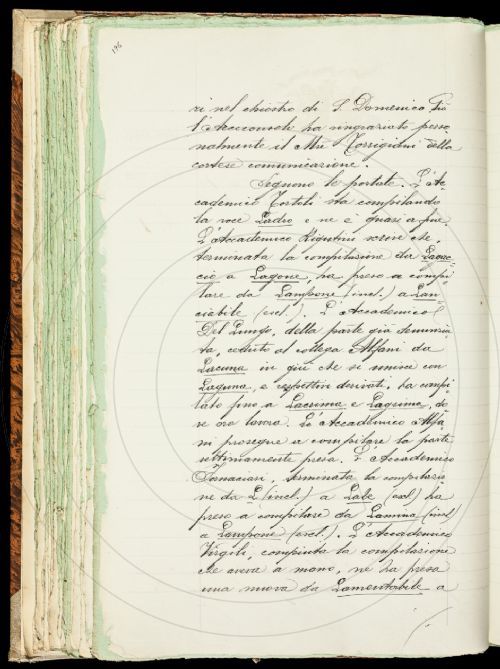 196
ri nel chiostro di S. Domenico. Più
l'Arciconsolo ha ringraziato perso
nalmente il Mse Torrigiani della
cortese comunicazione.
Seguono le portate. L'Ac
cademico Tortoli sta compilando
la voce Ladro e ne è quasi a fine.
L'Accademico Rigutini scrive che,
terminata la compilazione da Laac
cio a Lagone, ha preso a compi
lare da Lampone (incl.) a Lan
ciabile (escl.). L'Accademico
Del Lungo, della parte già denunzia
ta, ceduto al collega Alfani da
Lacuna in giù che si unisce con
Laguna, e rispettivi derivati, ha compi
lato fino a Lacrima e Lagrima, do
ve ora lavora. L'Accademico Alfa
ni prosegue a compilare la parte
ultimamente presa. L'Accademico
Tanacari, terminata la compilazio
ne da L (incl.) a Lale (escl.) ha
preso a compilare da Lamina (incl.)
a Lampone (escl.). L'Accademico
Virgili, compiuta la compilazione
che aveva a mano, ne ha presa
una nuova da Lamentabile a